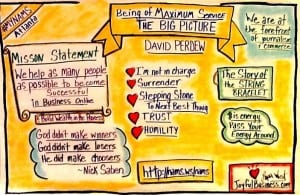 #MYNAMS
Atlanta
Being of MAXIMUM Service
THE BIG PICTURE
DAVID PERDEW
We are at
the forefront
of journalism
& commerce
MISSON STATEMENT
We help as many people
as possible to become
Successful
in Business Online
& Build Wealth in the Process
I'm not in charge
Surrender
Stepping Stone
To Next Best Thing
TRUST
HUMILITY
The Story of
the STRING
BRACELET
$ is energy
Pass Your
Energy Around
God didn't make winners
God didn't make losers
He did make choosers
~Nick Saben
http://nams.ws/nams
JoyfulBusiness.com